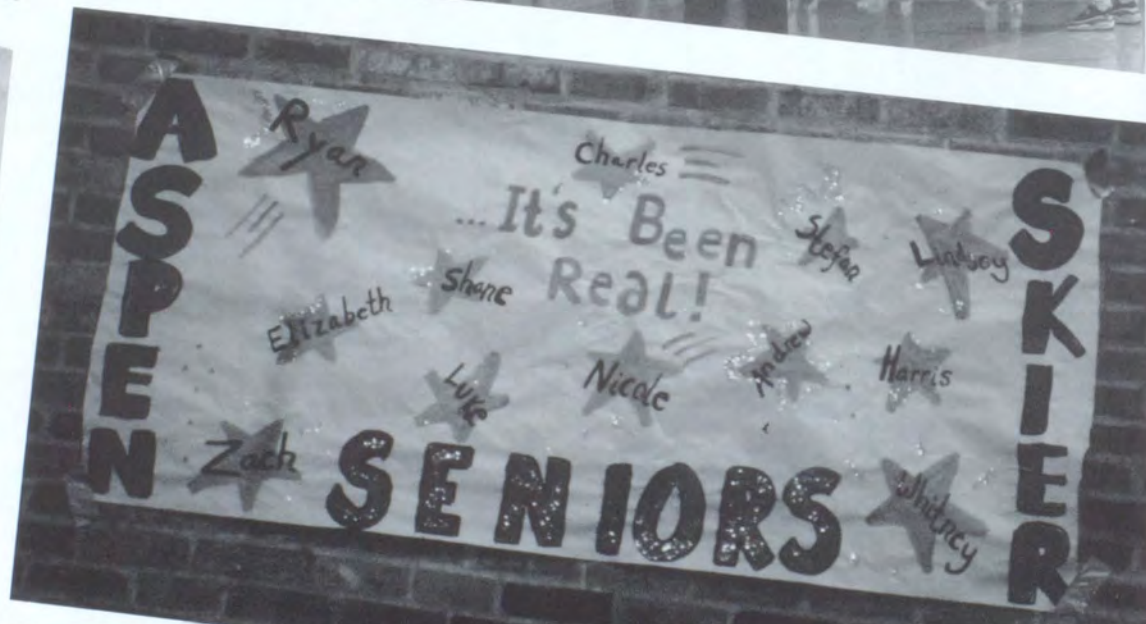 ASPEN
SKIER
Ryan
Charles
...It's Been
Real!
Stefan
Lindsay
Shane
Elizabeth
Luke
Nicole
Andrew
Harris
Zach
SENIORS
Whitney